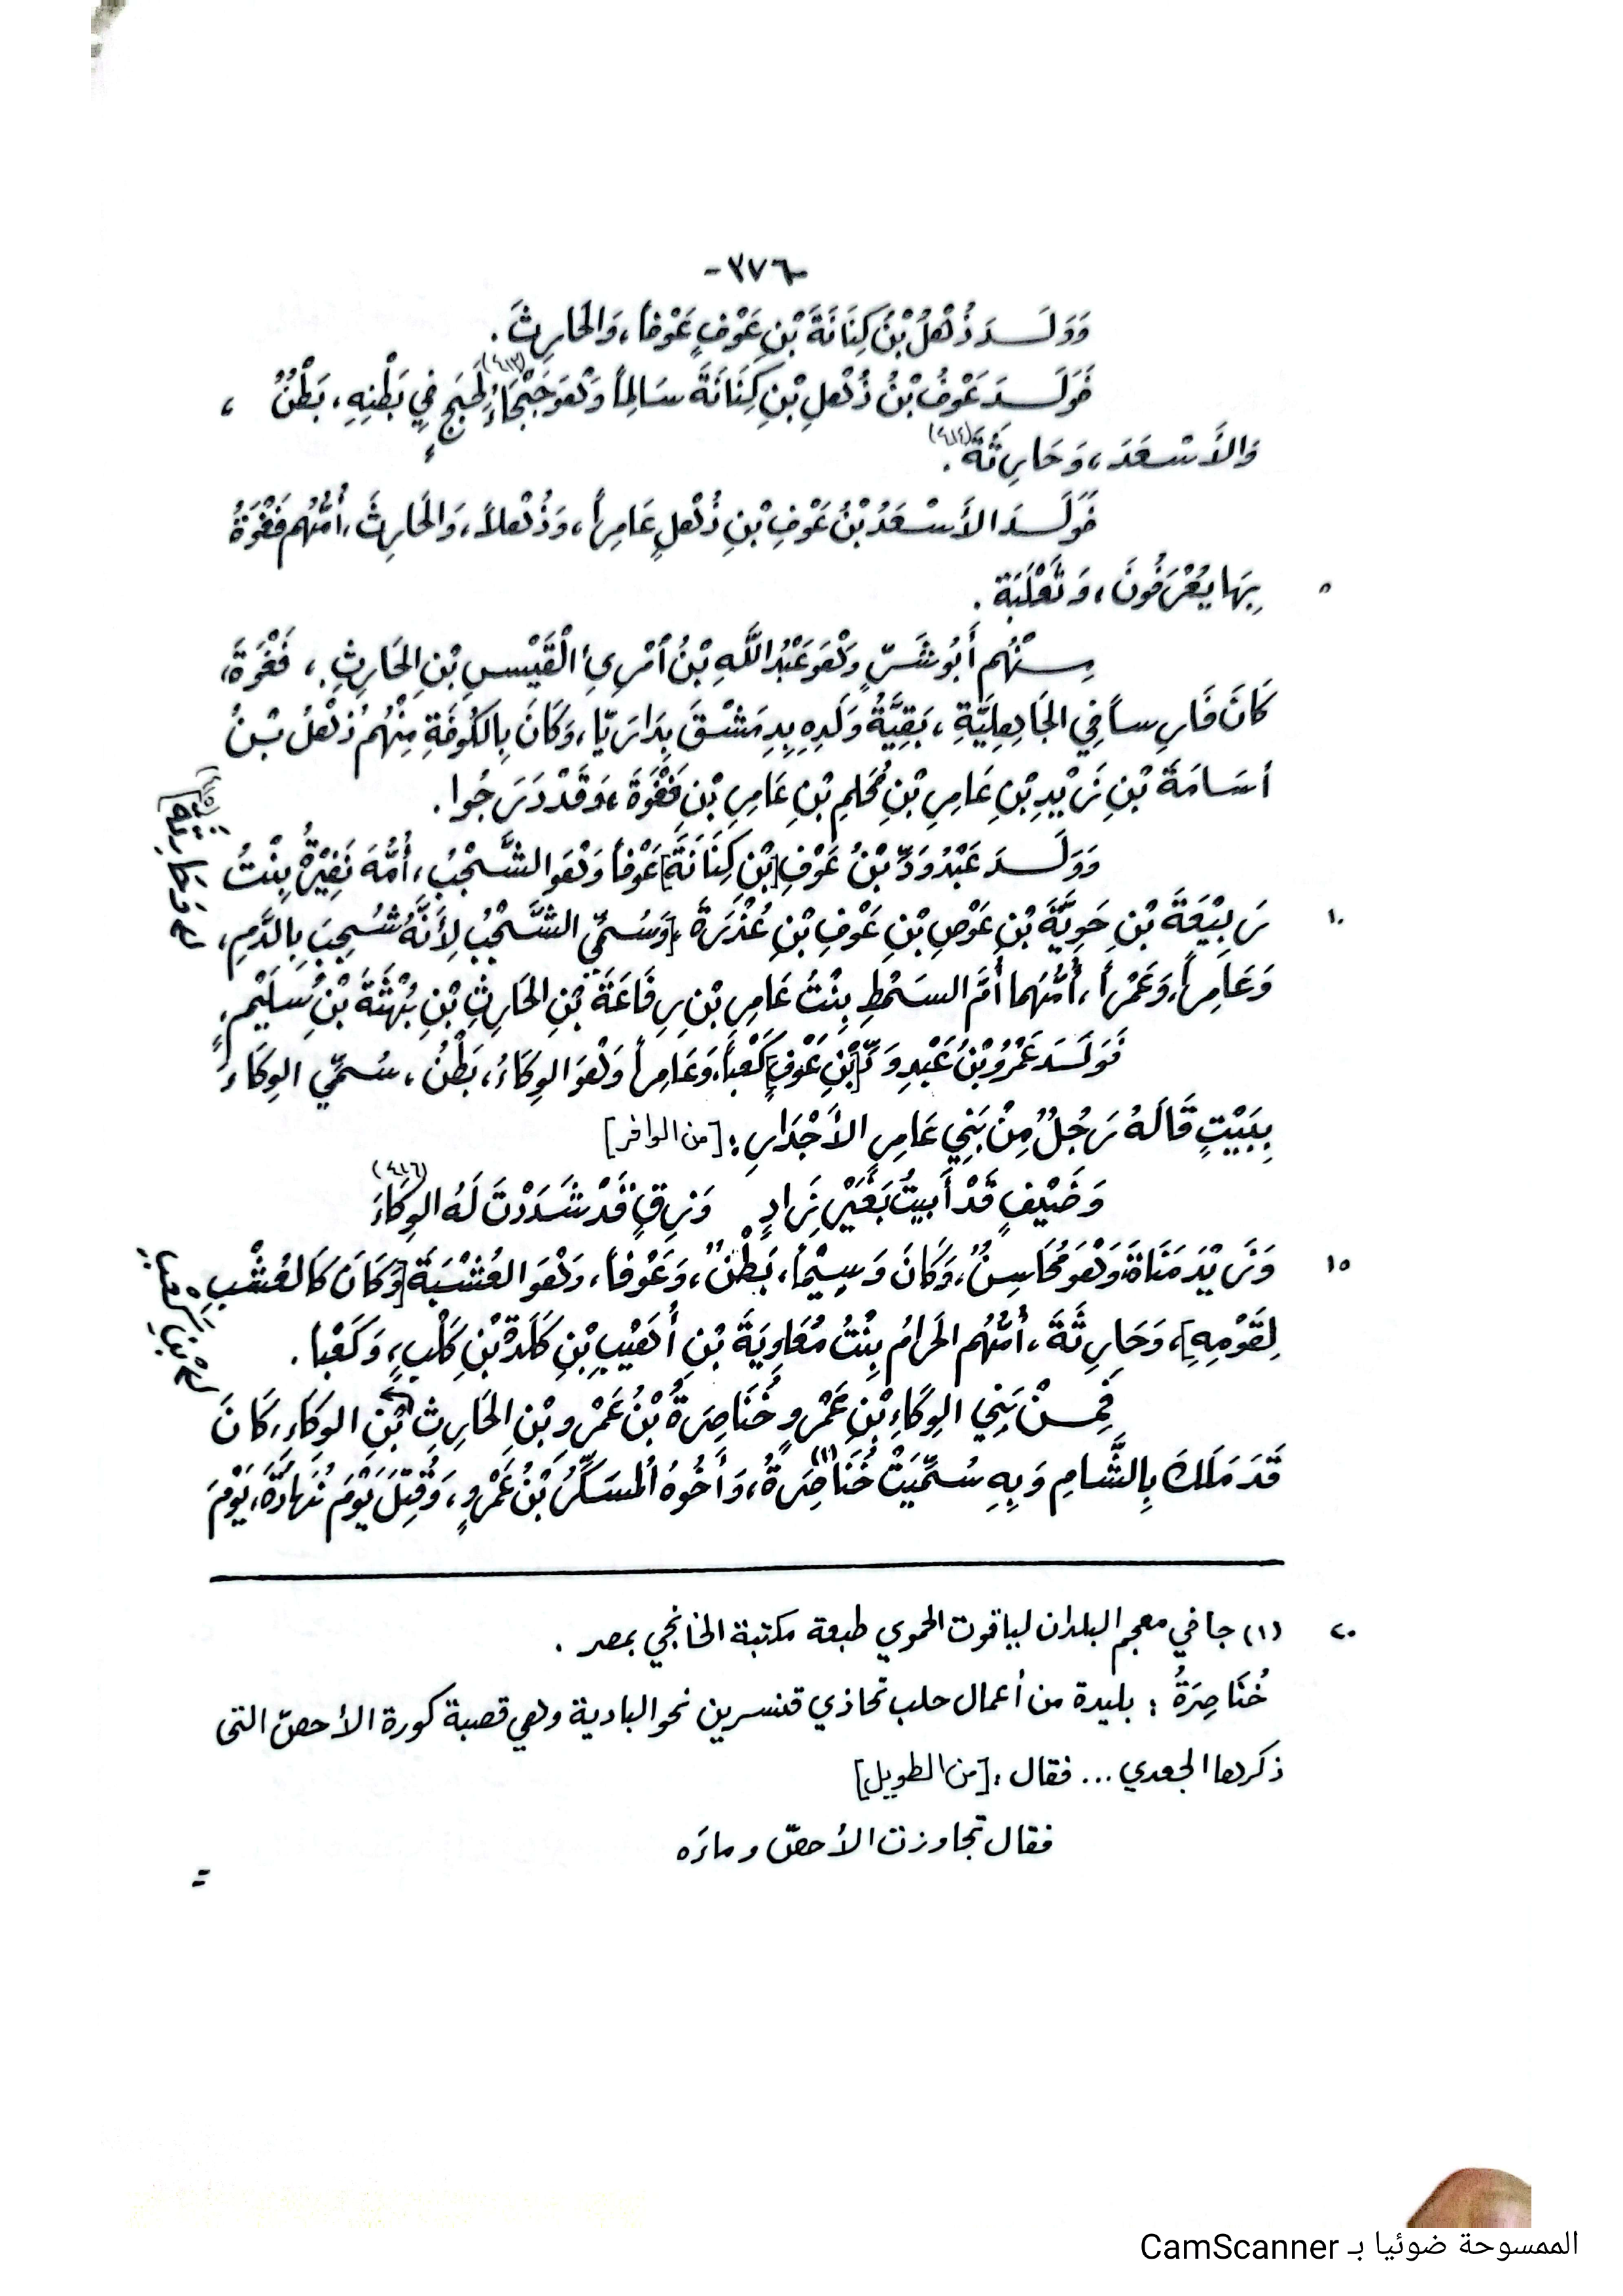 -٣٧٦-
وَوَلَــدَ ذُهْلُ بْنُ كِنَانَةَ بْنِ عَوْفٍ عَوْفاً، وَالحَارِثَ.
فَوَلَــدَ عَوْفُ بْنُ ذُهْلِ بْنِ كِنَانَةَ سَالِماً وَهُوَ حَجْبَاءُ (٤١٣) لِحَبَجٍ فِي بَطْنِهِ، بَطْنٌ،
وَالأَسْعَدَ، وَحَارِثَةَ (٤١٤).
فَوَلَــدَ الأَسْعَدُ بْنُ عَوْفِ بْنِ ذُهْلٍ عَامِراً، وَذُهْلاً، وَالحَارِثَ، أُمُّهُم فَغْوَةُ
٥ بِهَا يُعْرَفُونَ، وَثَعْلَبَةَ.
مِــنْهُم أَبُو شَــرٍّ وَهُوَ عَبْدُ اللَّهِ بْنُ امْرِئِ الْقَيْسِ بْنِ الحَارِثِ، فَغْوَةَ،
كَانَ فَارِساً فِي الجَاهِلِيَّةِ، بَقِيَّةُ وَلَدِهِ بِدِمَشْقَ بِدَارَيَّا، وَكَانَ بِالكُوفَةِ مِنْهُم ذُهْلُ بْنُ
أُسَامَةَ بْنِ زَيْدِ بْنِ عَامِرِ بْنِ مُحَلِمِ بْنِ عَامِرِ بْنِ فَغْوَةَ، وَقَدْ دَرَجُوا.
وَوَلَــدَ عَبْدُ وَدِّ بْنُ عَوْفِ [بْنِ كِنَانَةَ] عَوْفاً وَهُوَ الشَّجْبُ، أُمُّهُ نَفِيْرُ بِنْتُ
١٠ رَبِيْعَةَ بْنِ حَوِيَّةَ بْنِ عَوْصِ بْنِ عَوْفِ بْنِ عُذْرَةَ، [وَسُمِّي الشَّجْبُ لِأَنَّهُ شُجِبَ بِالدَّمِ،
وَعَامِراً، وَعَمْراً، أُمُّهُمَا أُمُّ السَمْطِ بِنْتُ عَامِرِ بْنِ رِفَاعَةَ بْنِ الحَارِثِ بْنِ بُهْثَةَ بْنِ سُلَيْمٍ،
فَوَلَــدَ عَمْرُو بْنُ عَبْدِ وَدِّ [بْنِ عَوْفٍ] كَعْباً، وَعَامِراً وَهُوَ الوِكَاءُ، بَطْنٌ، سُمِّي الوِكَاءَ
بِبَيْتٍ قَالَهُ رَجُلٌ مِنْ بَنِي عَامِرِ الأَجْدَارِ: [من الوافر]
وَضَيْفٍ قَدْ أَبِيتُ بَغَيْرِ زَادٍ وَزِقٍّ قَدْ شَدَدْتَ لَهُ الوِكَاءَ (٤١٦)
١٥ وَزَيْدَ مَنَاةَ، وَهُوَ مُحَاسِنٌ، وَكَانَ وَسِيْماً، بَطْنٌ، وَعَوْفاً، وَهُوَ العُشْبَة [وَكَانَ كَالعُشْبِ
لِقَوْمِهِ]، وَحَارِثَةَ، أُمُّهُم الحَرَامُ بِنْتُ مُعَاوِيَةَ بْنِ أُهَيْبِ بْنِ كَلَدَةَ بْنِ كَلْبٍ، وَكَعْباً.
فَمِــنْ بَنِي الوِكَاءِ بْنِ عَمْرٍو خُنَاصِرَةُ بْنُ عَمْرِو بْنِ الحَارِثِ بْنِ الوِكَاءِ، كَانَ
قَدَ مَلَكَ بِالشَّامِ وَبِهِ سُمِّيَتْ خُنَاصِرَةُ (١)، وَأَخُوهُ المُسَكِّرُ بْنُ عَمْرٍو، وَقُتِلَ يَوْمَ نُهَادَةَ، يَوْمَ
٢٠ (١) جا في معجم البلدان لياقوت الحموي طبعة مكتبة الخانجي بمصر.
خُنَاصِرَةُ: بليدة من أعمال حلب تحاذي قنسرين نحو البادية وهي قصبة كورة الأحصّ التى
ذكرها الجعدي ... فقال: [من الطويل]
فقال تجاوزت الأحصّ وماءَه
=
الممسوحة ضوئيا بـ CamScanner